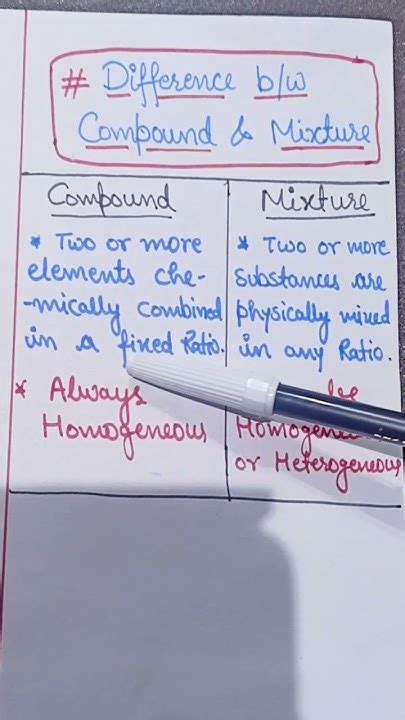 # Difference b/w
Compound & Mixture
Compound
* Two or more
elements che-
-mically combined
in a fixed Ratio.
* Always
Homogeneous
Mixture
* Two or more
substances are
physically mixed
in any Ratio.
or Heterogeneous